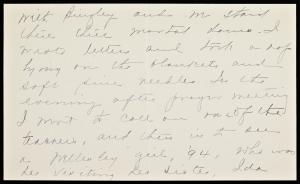 with Bingley and
their
wrote letters and took a nap
lying on the blankets and
soft pine needles. In the
evening after prayer meeting
I went to call on one of the
teachers, and there is to see
a Wellesley girl, '94, who was
her visiting her sister, Ida